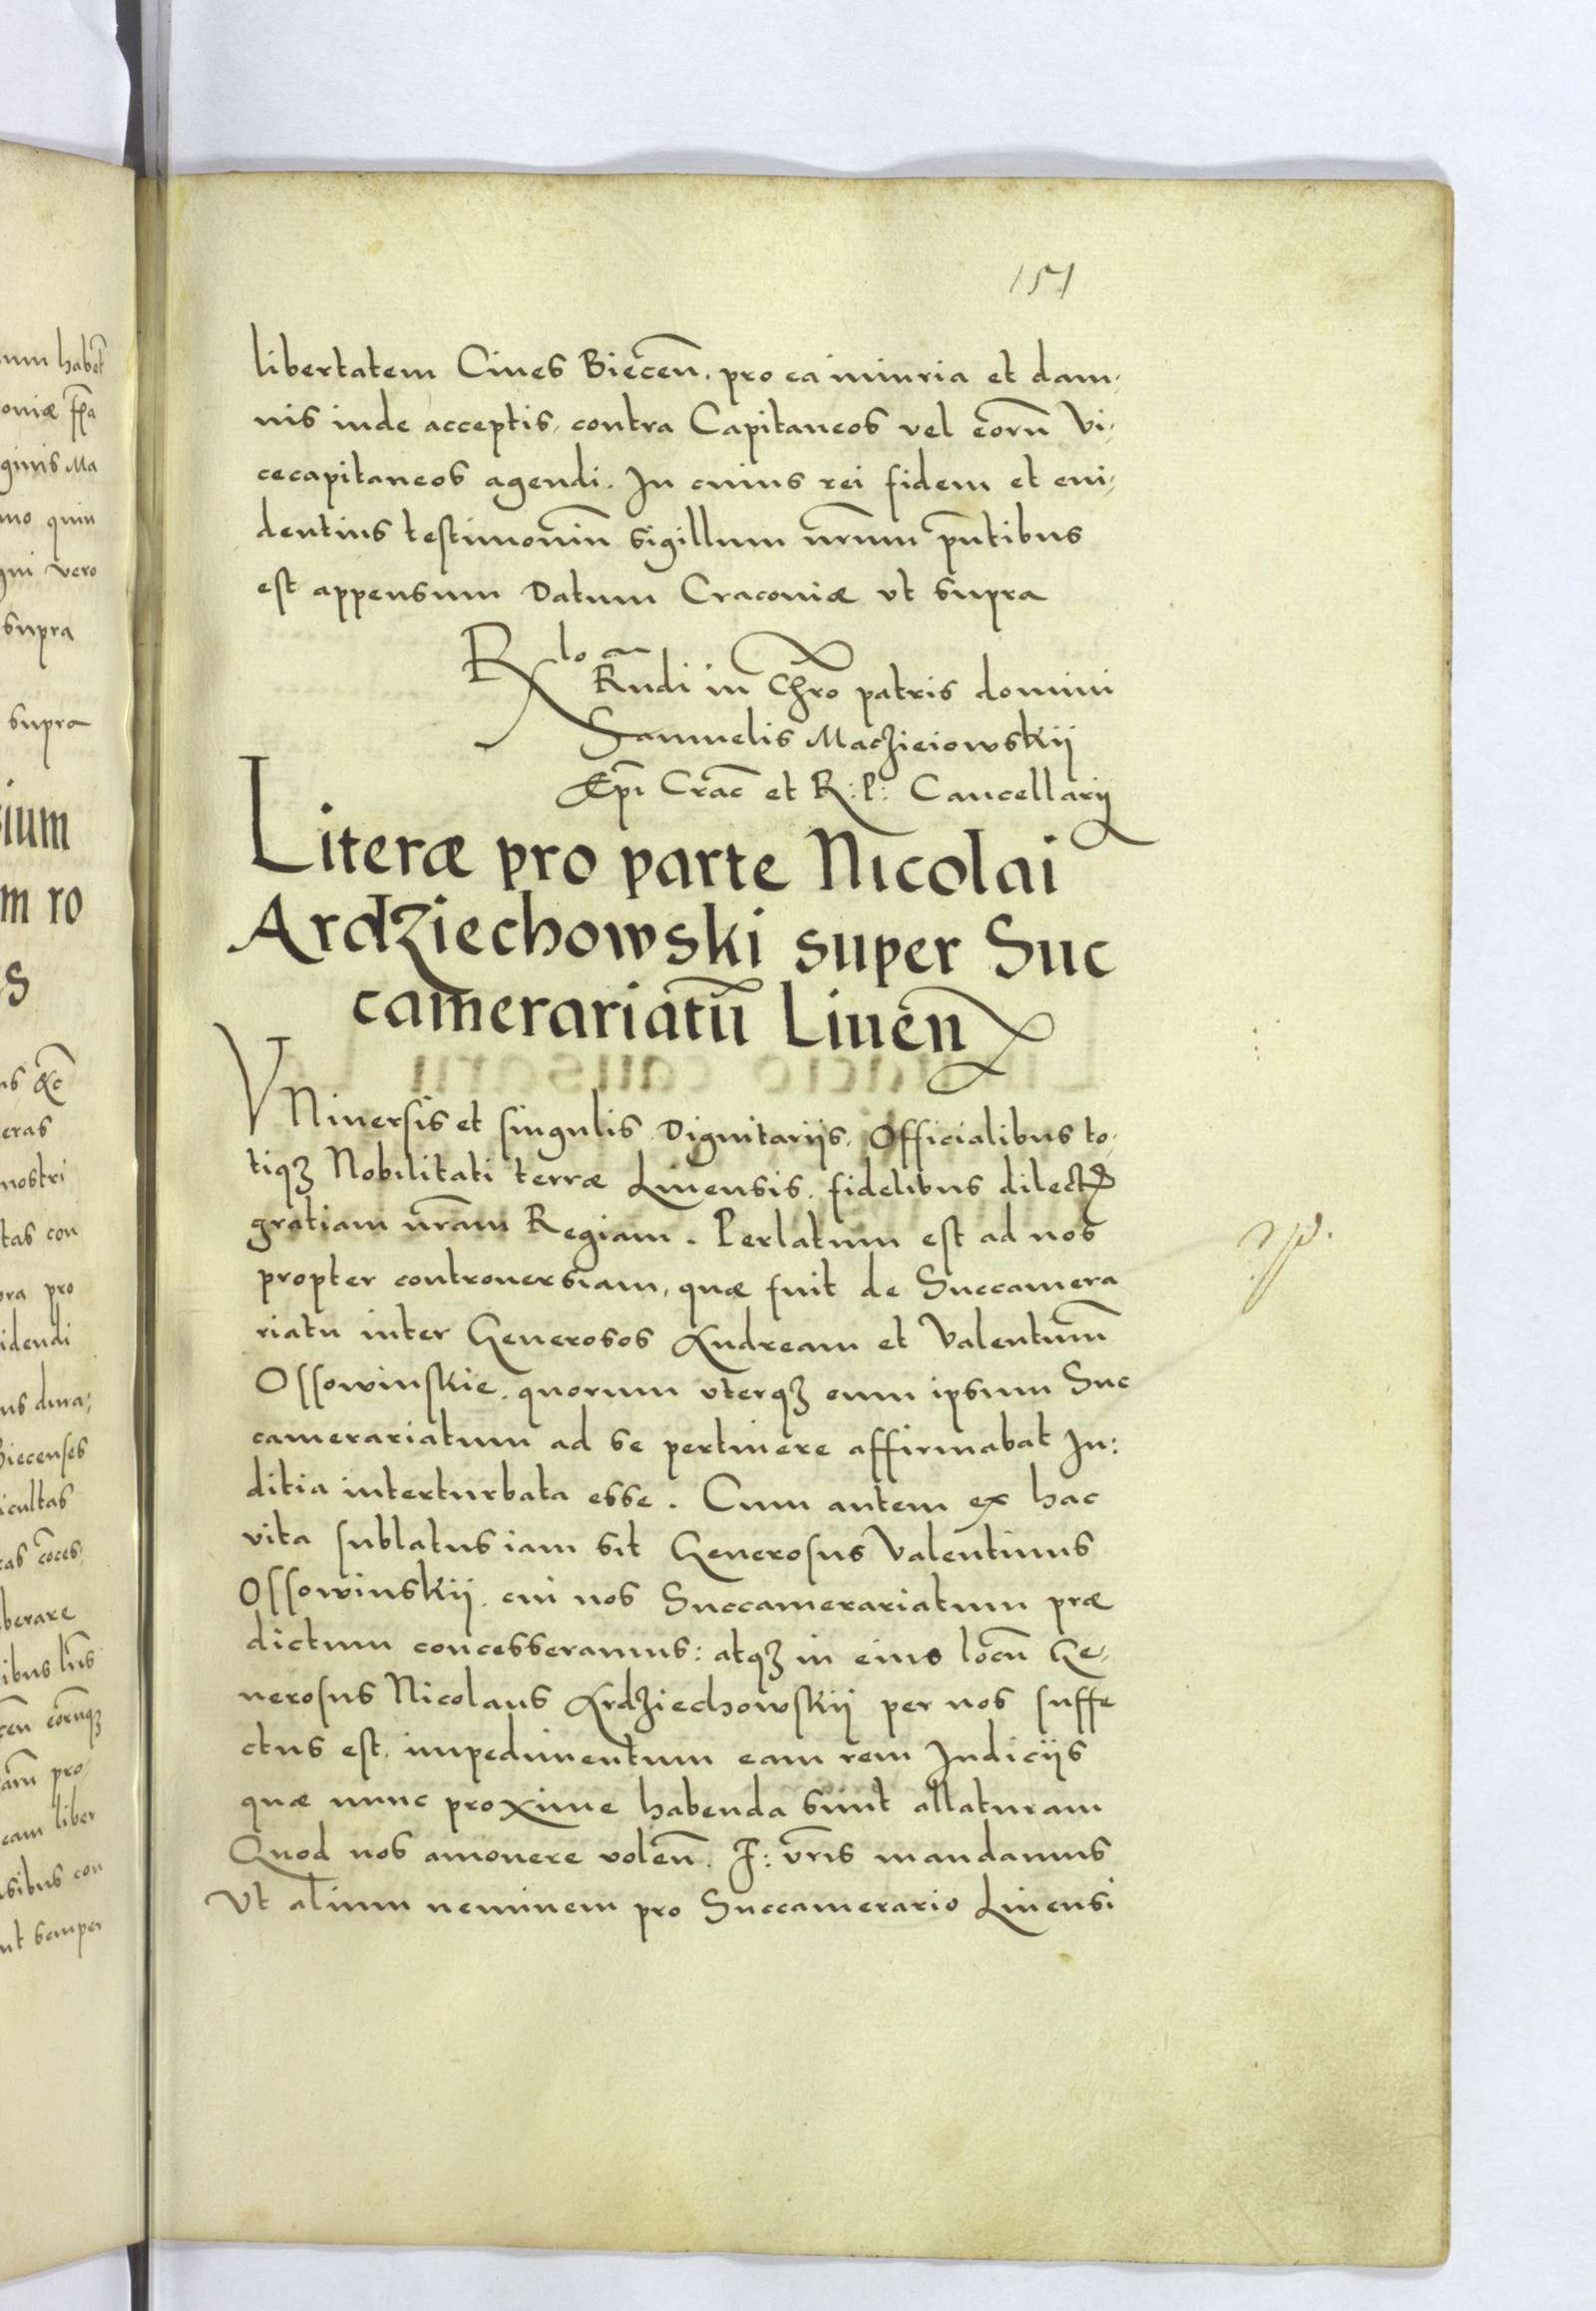 151
libertatem Ciues Biecen̄. pro ea iniuria et dam,
nis inde acceptis, contra Capitaneos vel eorū Vi,
cecapitaneos agendi. In cuius rei fidem et eui,
dentius testimoniū sigillum nr̄um pn̄tibus
est appensum Datum Cracouiæ vt supra
Rlo
Rn̄di in Chr̄o patris domini
Samuelis Maczieiowskij
Ep̄i Crac̄ et R: P: Cancellarij
Literæ pro parte Nicolai
Ardziechowski super Suc
camerariatū Liuen̄
VNiuersis et singulis Dignitarijs, Officialibus to,
tiqꝫ Nobilitati terræ Liuensis, fidelibus dilectꝭ
gratiam nr̄am Regiam. Perlatum est ad nos
propter controuersiam, quæ fuit de Succamera
riatu inter Generosos Andream et Valentinū
Ossowinskie, quorum vterqꝫ eum ipsum Suc
camerariatum ad se pertinere affirmabat Iu:
ditia interturbata esse. Cum autem ex hac
vita sublatus iam sit Generosus Valentinus
Ossowinskij, cui nos Succamerariatum præ
dictum concesseramus: atqꝫ in eius locū Ge,
nerosus Nicolaus Ardziechowskij per nos suffe
ctus est, impedimentum eam rem Iudicijs
quæ nunc proxime habenda sunt allaturam
Quod nos amouere volen̄. F: vr̄is mandamus
Vt alium neminem pro Succamerario Liuensi